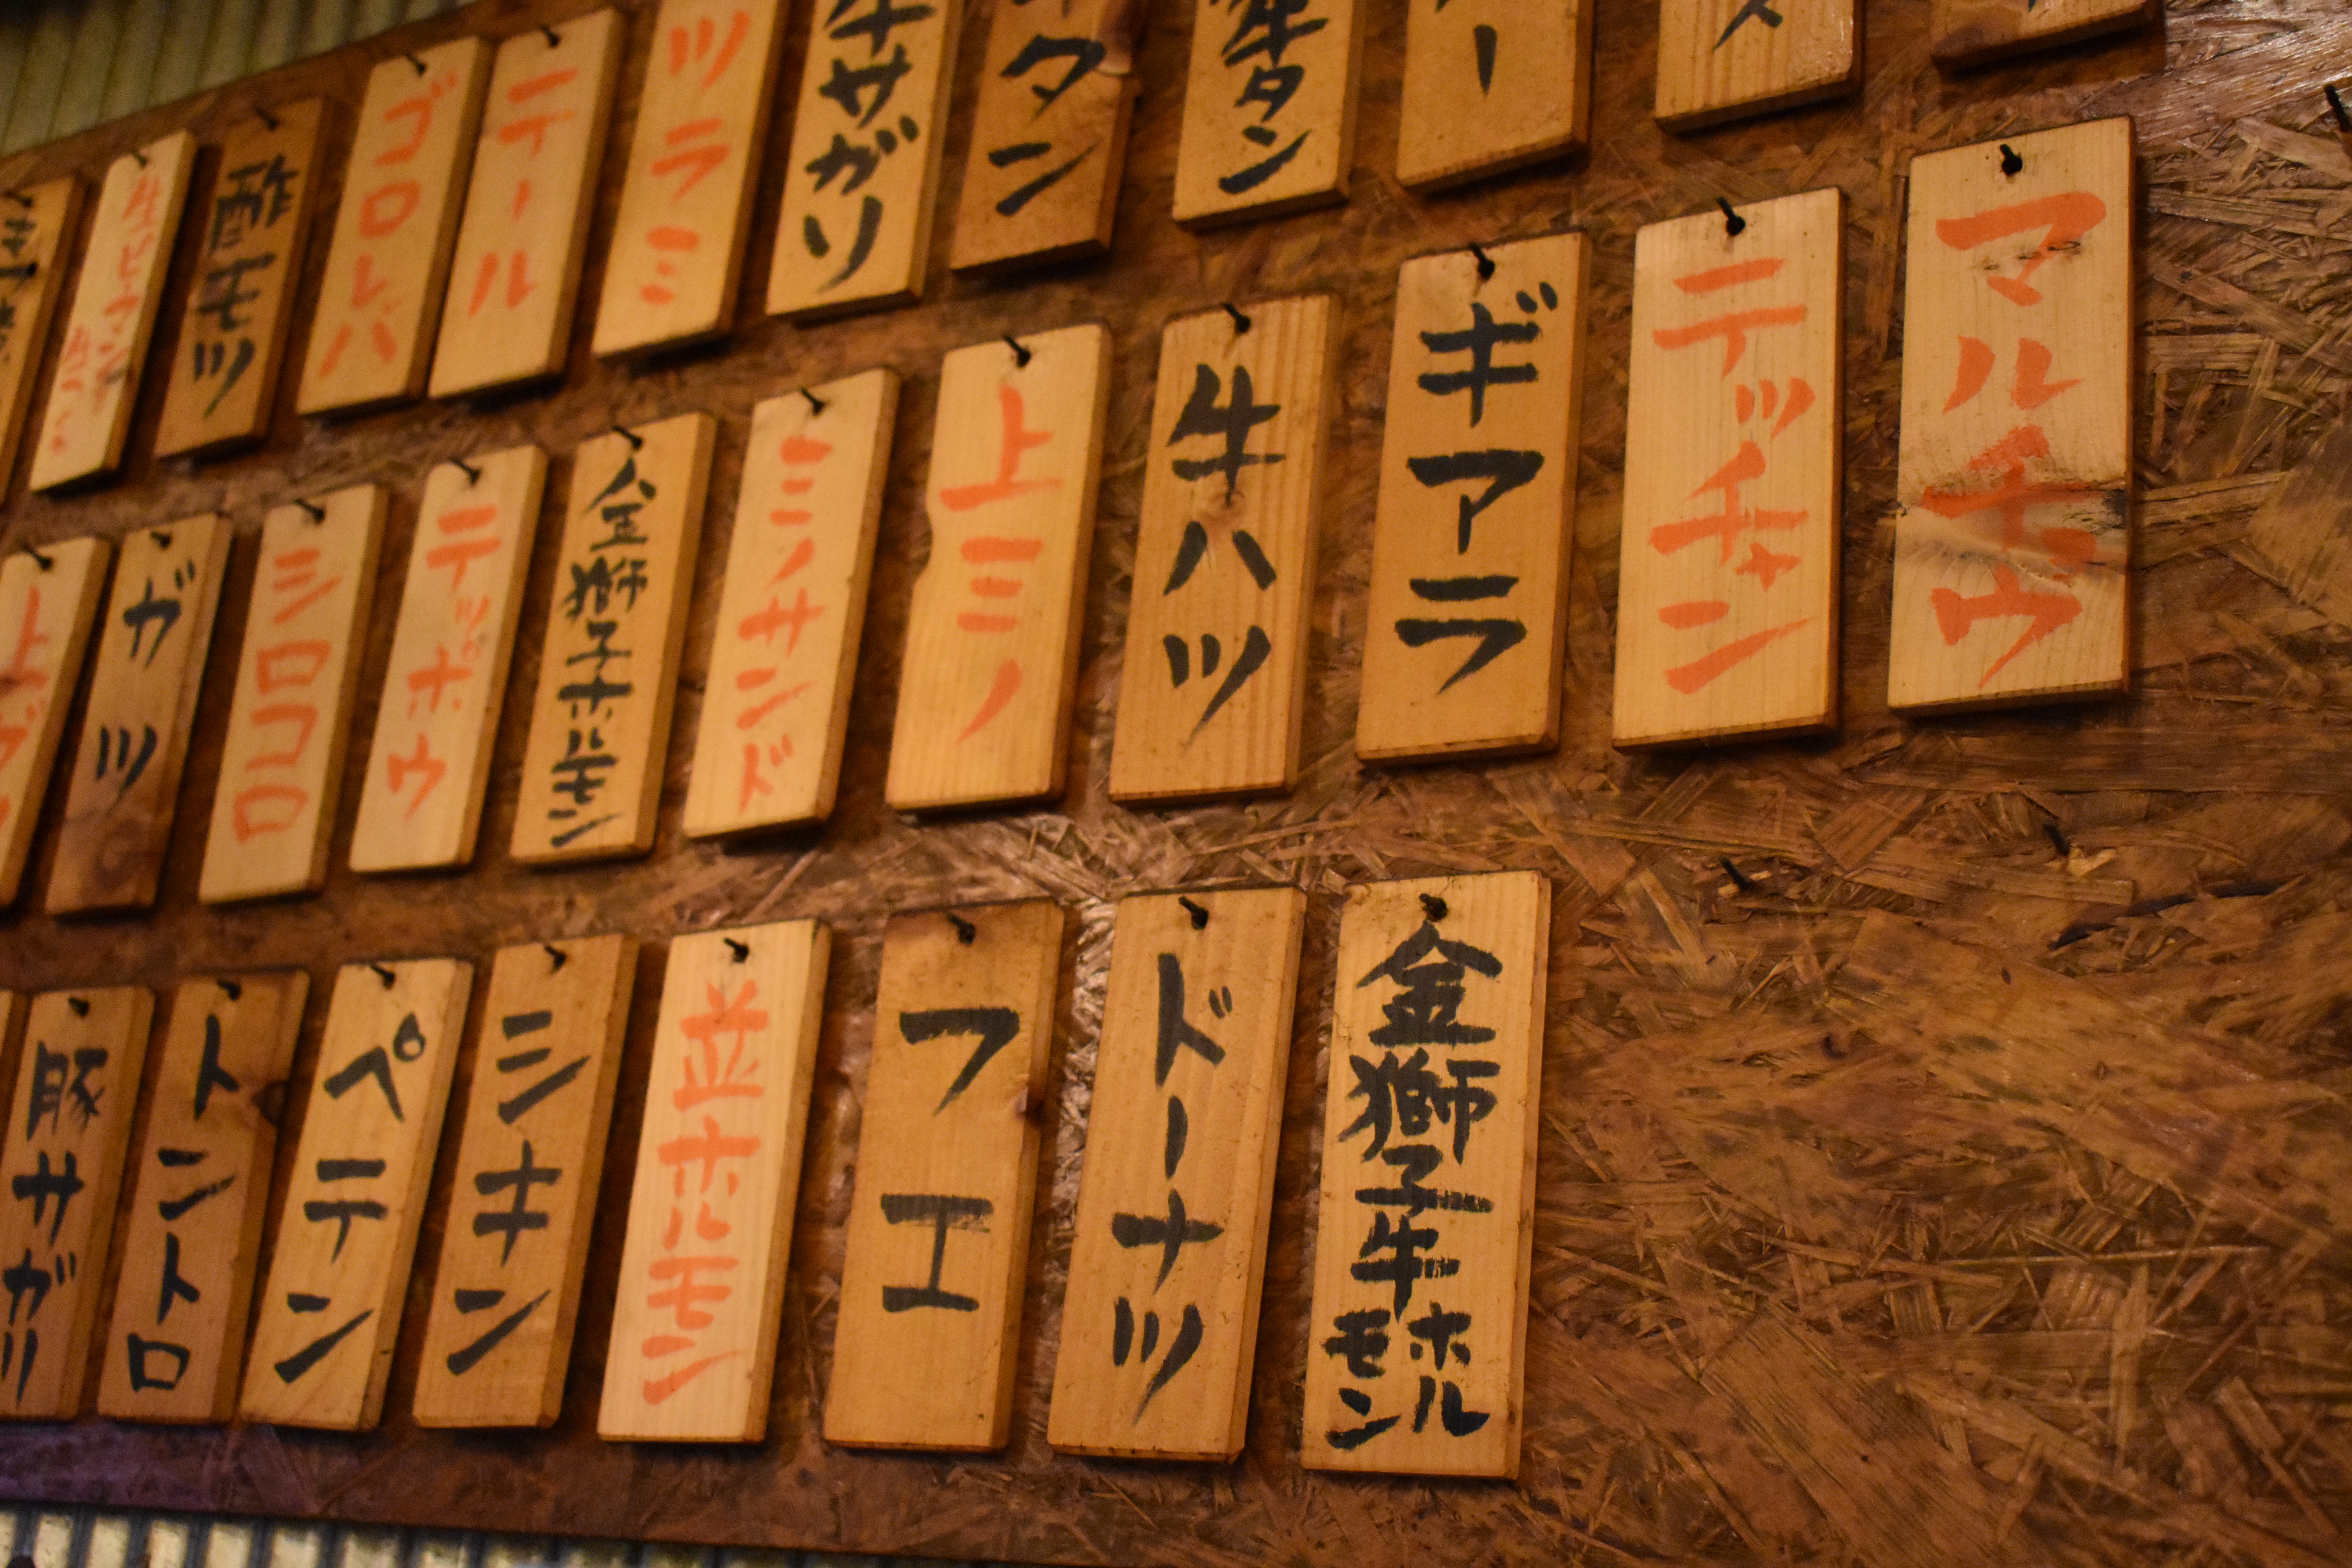 牛タン
タン
牛サガリ
ツラミ
テール
ゴロレバ
酢モツ
マルチョウ
テッチャン
ギアラ
牛ハツ
上ミノ
ミノサンド
金獅子ホルモン
テッポウ
シロコロ
ガツ
金獅子牛ホルモン
ドーナツ
フエ
並ホルモン
シキン
ペテン
トントロ
豚サガリ